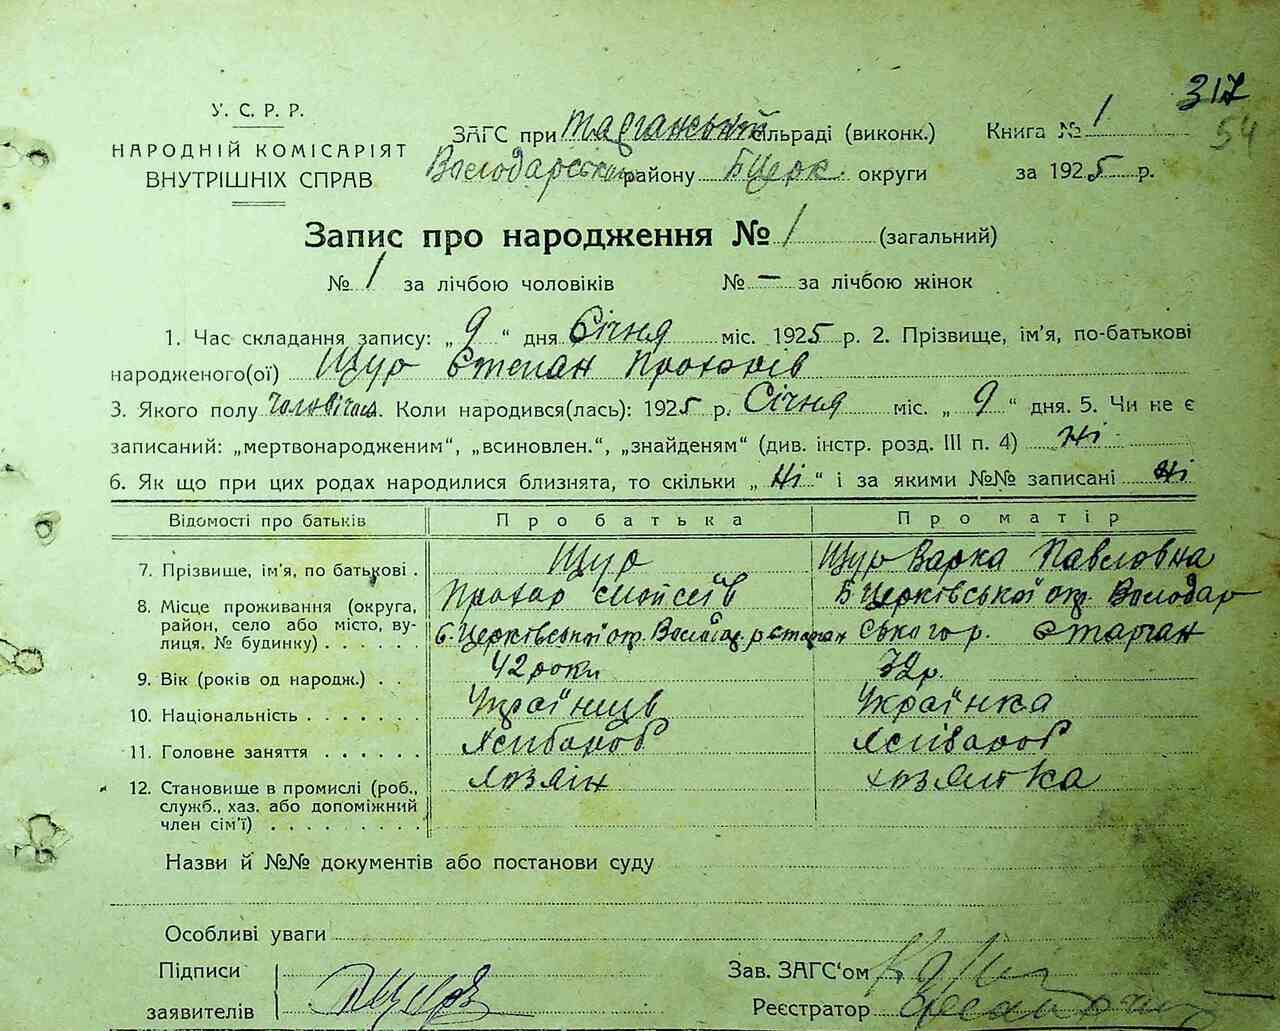 317
54
У. С. Р. Р.
НАРОДНІЙ КОМІСАРІЯТ
ВНУТРІШНІХ СПРАВ
ЗАГС при сільраді (виконк.) Книга № 1
Володарськом району Бцерк. округи за 1925 р.
Запис про народження № 1 (загальний)
№ 1 за лічбою чоловіків № — за лічбою жінок
1. Час складання запису: „ 9 “ дня Січня міс. 1925 р. 2. Прізвище, ім'я, по-батькові
народженого(ої) Щур Степан Прохорів
3. Якого полу чоловічого. Коли народився(лась): 1925 р. Січня міс. „ 9 “ дня. 5. Чи не є
записаний: „мертвонародженим“, „всиновлен.“, „знайденям“ (див. інстр. розд. III п. 4) Ні
6. Як що при цих родах народилися близнята, то скільки „ Ні “ і за якими №№ записані Ні
Відомості про батьків Про батька Про матір
7. Прізвище, ім'я, по батькові . Щур Щур Варка Павловна
8. Місце проживання (округа, Прохор Мойсеїв Б Церківської ок. Володар
район, село або місто, ву-
лиця, № будинку) . . . . . . б. Церківської ок. Володар. р ського р.
9. Вік (років од народж.) . . 42 роки 32 р.
10. Національність . . . . . . . Українців Українка
11. Головне заняття . . . . . .
12. Становище в промислі (роб., хозяін хозяйка
служб., хаз. або допоміжний
член сім'ї) . . . . . . . . .
Назви й №№ документів або постанови суду
Особливі уваги
Підписи
заявителів
Зав. ЗАГС'ом
Реєстратор